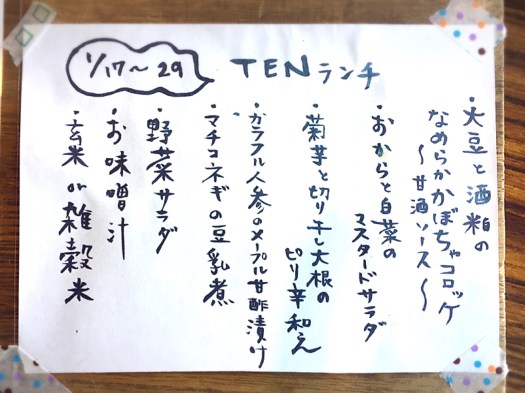 1/17〜29
TENランチ
・大豆と酒粕の
なめらかかぼちゃコロッケ
〜甘酒ソース〜
・おからと白菜の
マスタードサラダ
・菊芋と切り干し大根の
ピリ辛和え
・カラフル人参のメープル甘酢漬け
・マチコネギの豆乳煮
・野菜サラダ
・お味噌汁
・玄米or雑穀米